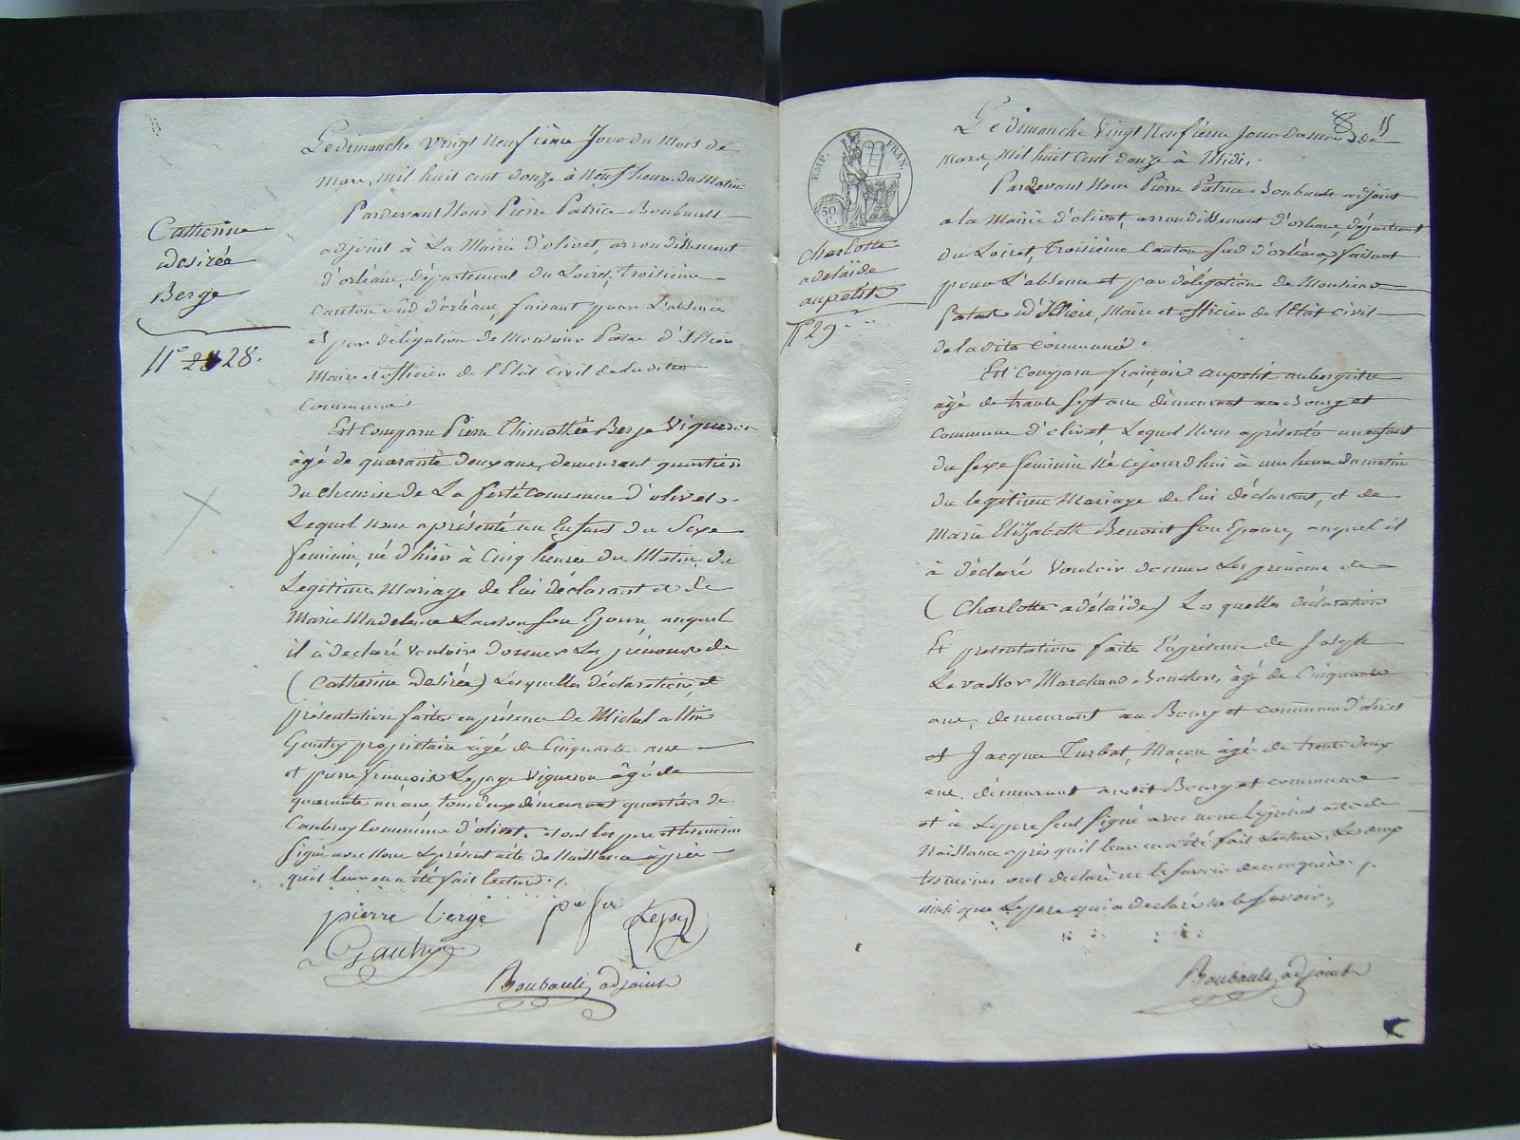 Catherine
desirée
Berge
N.° 28.
Le dimanche vingt neufième Jour du Mois de
Mars, Mil huit cent douze à Neuf heures du Matin
Pardevant Nous Pierre Patrice Boubault
adjoint à La Mairie d'olivet, arrondissement
d'orléans, département du Loiret, troisième
canton sud d'orléans, faisant pour L'absence
et par délégation de Monsieur Patas d'Illiers
Maire et officier de l'Etat civil de la dite
commune
Est Comparu Pierre Thimothée Berge Vigneron
âgé de quarante deux ans, demeurant quartier
du chemin de La ferté Commune d'olivet
Lequel nous a présenté un Enfant du Sexe
feminin, né d'hier à Cinq heures du Matin, du
Legitime Mariage de lui déclarant et de
Marie Madeleine son Epouse, auquel
il à declaré vouloir donner Les prénoms de
(Catherine Desirée) Lesquelles déclaration, et
présentation faites en présence de Michel
Gautry propriétaire âgé de Cinquante ans
et pierre françois Lepage Vigneron âgé de
quarante ans tous deux demeurant quartier de
Commune d'olivet. et ont Les pere et temoins
signé avec Nous Le présent acte de Naissance après
qu'il leur en a été fait lecture ./.
pierre berge
Gautry
Boubault adjoint
EMP. FRAN.
50 C.
Charlotte
adelaïde
aupetit
N.° 29
Le dimanche Vingt Neufième Jour du mois de
Mars, Mil huit cent douze à Midi.
Pardevant Nous Pierre Patrice Boubault adjoint
a la Mairie d'olivet, arrondissement d'orléans, département
du Loiret, troisième Canton Sud d'orléans, faisant
pour L'absence et par délégation de Monsieur
Patas d'Illiers, Maire et officier de l'Etat civil
de la dite commune.
Est Comparu françois aupetit aubergiste
âgé de trente sept ans demeurant au Bourg et
commune d'olivet, Lequel Nous a présenté un enfant
du sexe feminin né cejourd'hui à une heure du matin
du legitime Mariage de lui déclarant, et de
Marie Elizabeth Benoist son Epouse, auquel il
à déclaré Vouloir donner Les prénoms de
(Charlotte adélaïde) Les quelles déclaration
Et presentation faite En présence de Joseph
Levassor Marchand Boucher, âgé de Cinquante
ans, demeurant au Bourg et commune d'olivet
et Jacques Turbat, Maçon âgé de trente deux
ans, demeurant audit Bourg et commune
et à Le pere seul signé avec nous Le présent acte de
Naissance après qu'il leur en a été fait lecture, Les
temoins ont declaré ne le savoir de ce requis ./.
ainsi que Le pere qui a declaré ne le savoir.
Boubault adjoint